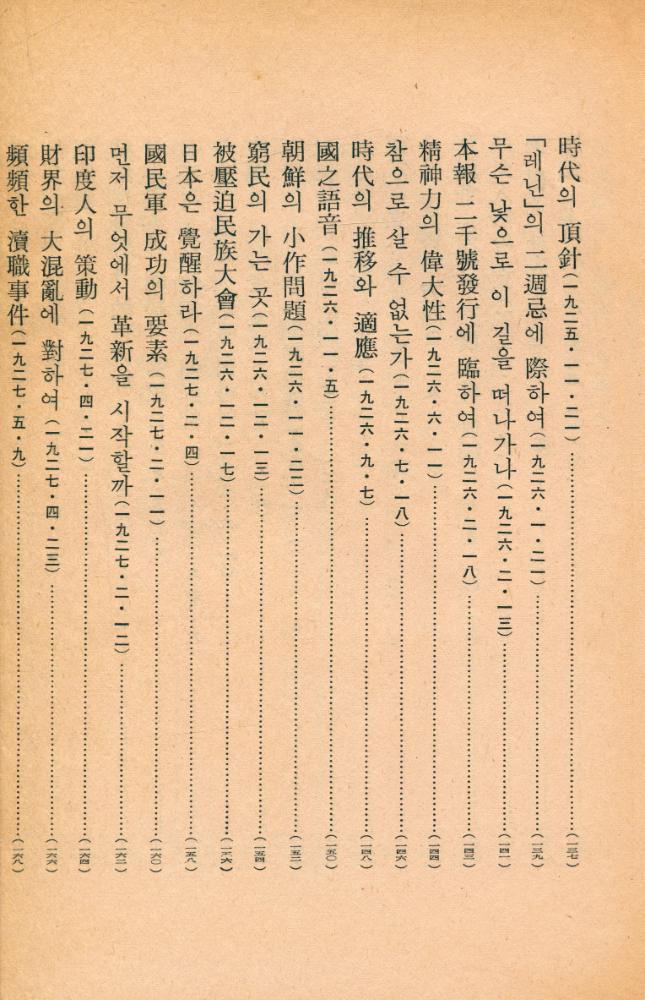 時代의 頂針(一九二五・一一・二一)……(一三七)
「레닌」의 二週忌에 際하여(一九二六・一・二一)……(一三九)
무슨 낯으로 이 길을 떠나가나(一九二六・二・一三)……(一四一)
本報 二千號發行에 臨하여(一九二六・二・一八)……(一四三)
精神力의 偉大性(一九二六・六・一一)……(一四四)
참으로 살 수 없는가(一九二六・七・一八)……(一四六)
時代의 推移와 適應(一九二六・九・七)……(一四八)
國之語音(一九二六・一一・五)……(一五〇)
朝鮮의 小作問題(一九二六・一一・二二)……(一五二)
窮民의 가는 곳(一九二六・一二・一三)……(一五四)
被壓迫民族大會(一九二六・一二・一七)……(一五六)
日本은 覺醒하라(一九二七・二・四)……(一五八)
國民軍 成功의 要素(一九二七・二・一一)……(一六〇)
먼저 무엇에서 革新을 시작할까(一九二七・二・一二)……(一六二)
印度人의 策動(一九二七・四・二一)……(一六四)
財界의 大混亂에 對하여(一九二七・四・二三)……(一六六)
頻頻한 瀆職事件(一九二七・五・九)……(一六八)